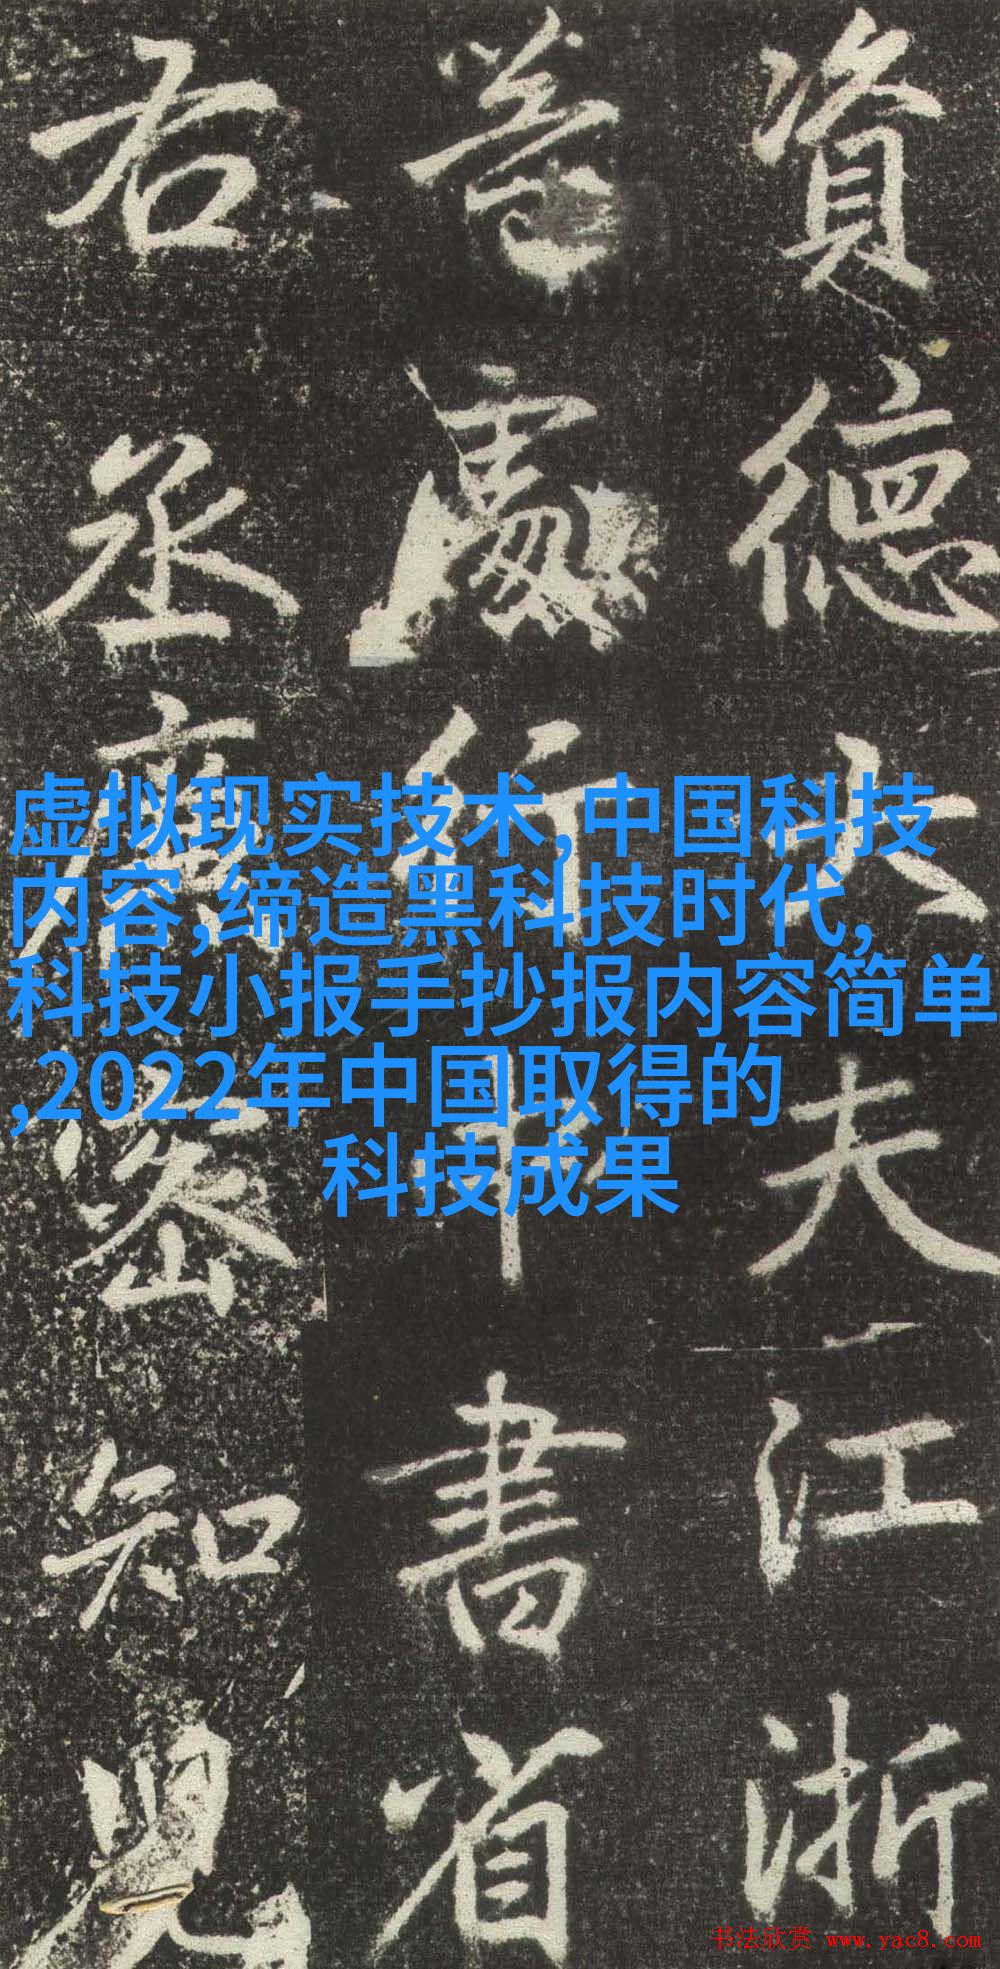 資德大夫江浙
等處行中書省
右丞齊密知兒
虚拟现实技术,中国科技
内容,缔造黑科技时代,
科技小报手抄报内容简单
,2022年中国取得的
科技成果
书法欣赏 www.yac8.com